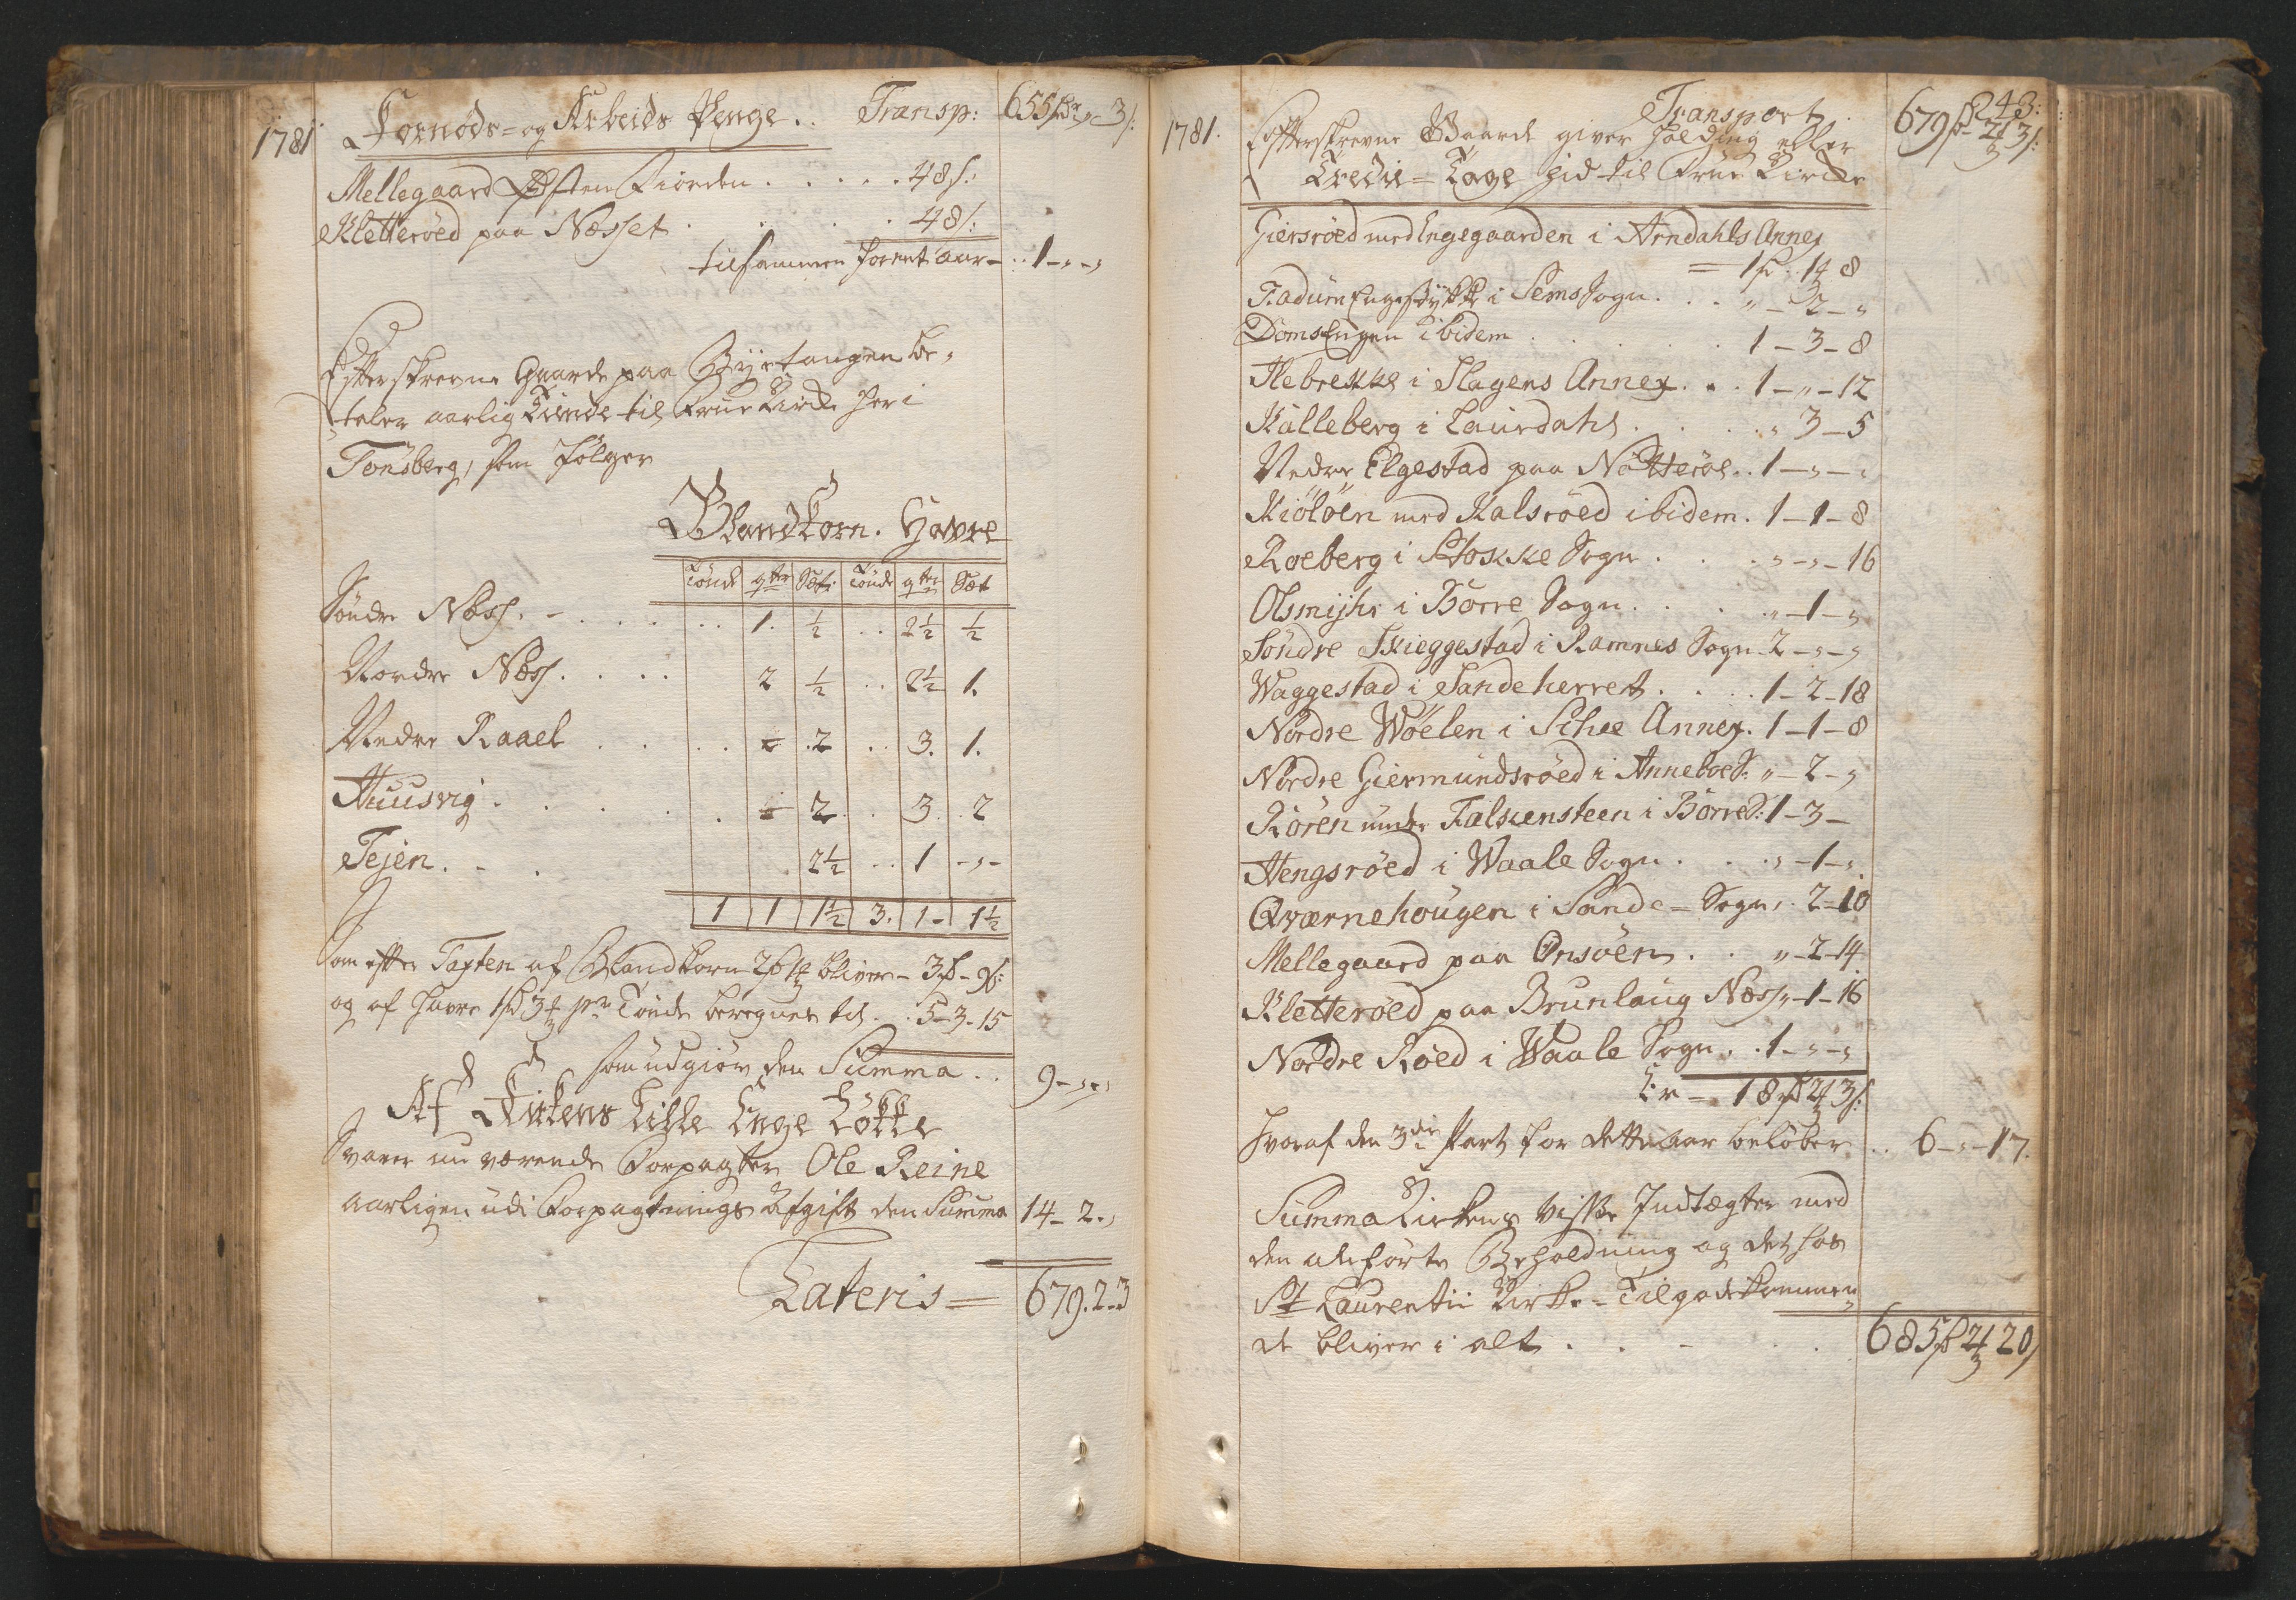 1781
Foernøds= og Arbeids Penge.. Transp: 655 rdr „ 3 s:
Mellegaard Østen Fiorden . . . . . 48 s.:
Kletteröed paa Næsset . . . . 48 s:
tilsammen foer et aar - .. 1 - „ - „
Efterskrevne Gaarde paa Byetangen be-
taler aarlig Tiende til Frue Kirke her i
Tonsberg, som følger
Blandkorn. Havre
Tönde qter Sæt: Tönde qter Sæt
Söndre Næss. - . . . . . . 1. ½ .. 2½ ½
Nordre Næss. . . . 2 ½ .. 2½ 1.
Nedre Raael . . . . . . 2 .. 3. 1.
Huusvig . . . . . . 2 .. 3. . 2
Tejen. - . . 2½ .. 1 - „ -
1 1 1½ 3. 1 - 1½
Som efter Taxten af Blandkorn 2 rd 1 ort bliver - 3 rd - 9 s:
og af Havre 1 rd 3 ort pr Tönde beregnes til . . 5 - 3 - 15
som udgiör den Summa . . 9 - „ - „
Af Kirkens Lille Enge Lökke
Svarer nu værende Forpagter Ole Reine
aarligen udi Forpagtnings Afgift den Summa 14 - 2 . „
Lateris = 679. 2 - 3
243:
1781. Transport. 679 rd 2 ort 3 s:
Efterskrevne Gaarde giver Holding eller
Tredie = Tage hid til Frue Kirke
Giersröed med Engegaarden i Arndahls Annex
= 1 rd „ 14 8
Fadum Engestÿkke i Sems Sogn . . . „ - 2 - „
Doms Engen ibidem . . . . . . 1 - 3 - 8
Flebrekke i Slagens Annex . . . 1 - „ - 12
Kalleberg i Laurdahl . . . . . „ 3 - 5
Nedre Elgestad paa Nötteröe . . 1 - „ - „
Kiölöen med Kalsröed ibidem. 1 - 1 - 8
Roeberg i Stokke Sogn . . . „ - „ - 16
Olsmijhr i Borre Sogn . . . . „ - 1 - „
Söndre Skieggestad i Ramnes Sogn 2 - „ - „
Waggestad i Sandeherret . . . . 1 - 2 - 18
Nordre Wöelen i Sihee Annex. 1 - 1 - 8
Nordre Giermundsröed i Anneboe S: „ - 2 - „
Rören under Falkensteen i Borre S: 1 - 3 -
Hengsröed i Waale Sogn . . . „ - 1 - „
Qværnehougen i Sande - Sogn . . 2 - 10
Mellegaard paa Onsöen . . „ - 2 - 14
Kletteröed paa Brunlaug Næss „ - 1 - 16
Nordre Röed i Waale Sogn . . 1 - „ - „
Er = 18 rd 2 ort 3 s:
Hvoraf den 3die Part for dette aar belöber . . 6 - „ - 17.
Summa Kirkens visse Indtægter med
den anförte Beholdning og det hos
St Laurentii Kirke - Tilgodekommen
de bliver i alt . . - . . 685 rd 2 ort 20